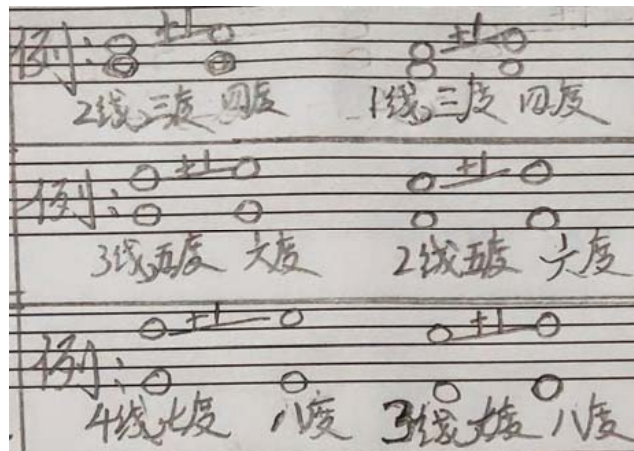 例: +1 +1
2线,三度 四度 1线,三度 四度
例: +1 +1
3线,五度 六度 2线五度 六度
例: +1 +1
4线,七度 八度 3线,七度 八度